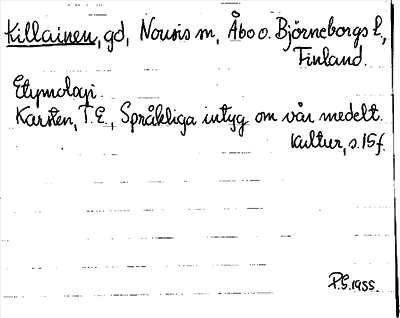 Killainen, gd, Nousis m, Åbo o. Björneborgs l.,
Finland.
Etymologi.
Karsten, T.E., Språkliga intyg om vår medelt.
kultur, s. 15 f.
P.S. 1955.